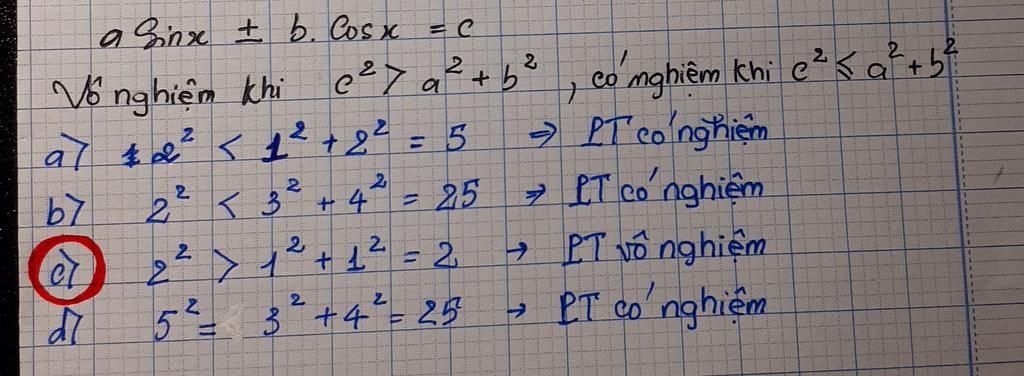 a Sinx ± b. Cosx = c
Vô nghiệm khi c² > a² + b², có nghiệm khi c² ≤ a² + b²
a) 2² < 1² + 2² = 5 ⇒ PT có nghiệm
b) 2² < 3² + 4² = 25 ⇒ PT có nghiệm
c) 2² > 1² + 1² = 2 → PT vô nghiệm
d) 5² = 3² + 4² = 25 → PT có nghiệm